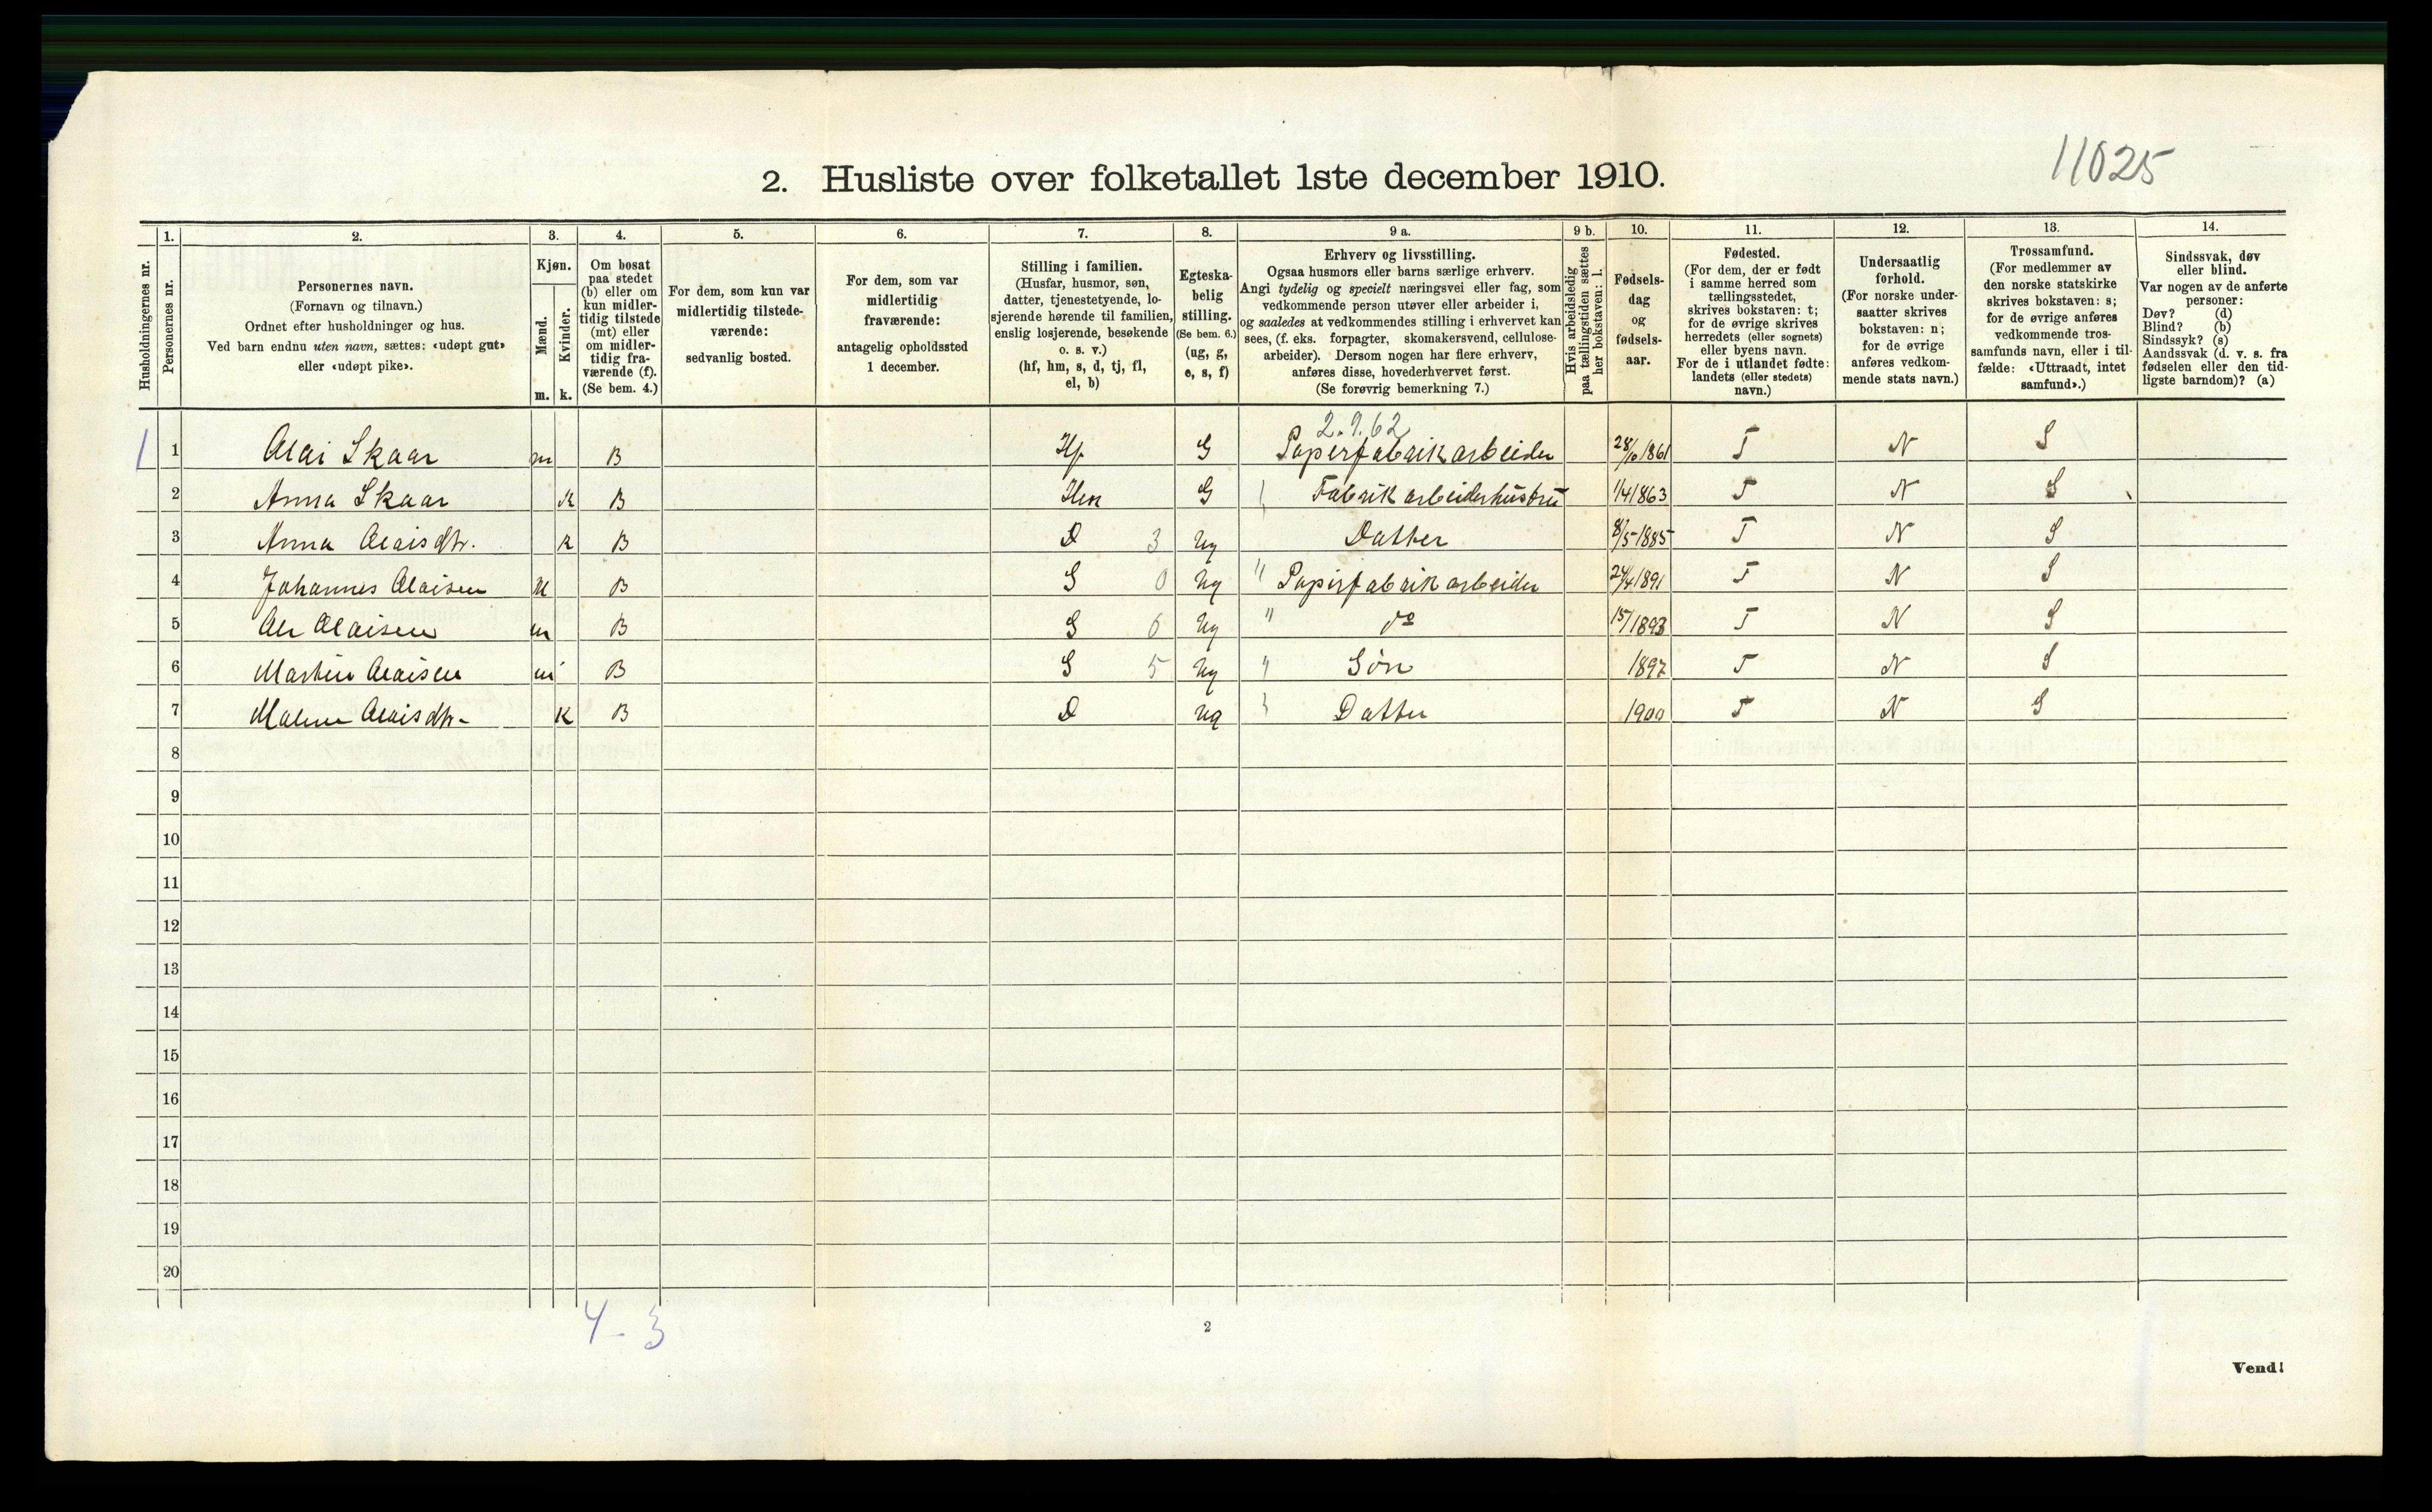 11025
2. Husliste over folketallet 1ste december 1910.
Husholdningernes nr.
1.
Personernes nr.
2.
Personernes navn.
(Fornavn og tilnavn.)
Ordnet efter husholdninger og hus.
Ved barn endnu uten navn, sættes: «udøpt gut»
eller «udøpt pike».
3.
Kjøn.
Mænd.
Kvinder.
m. k.
4.
Om bosat
paa stedet
(b) eller om
kun midler-
tidig tilstede
(mt) eller
om midler-
tidig fra-
værende (f).
(Se bem. 4.)
5.
For dem, som kun var
midlertidig tilstede-
værende:
sedvanlig bosted.
6.
For dem, som var
midlertidig
fraværende:
antagelig opholdssted
1 december.
7.
Stilling i familien.
(Husfar, husmor, søn,
datter, tjenestetyende, lo-
sjerende hørende til familien,
enslig losjerende, besøkende
o. s. v.)
(hf, hm, s, d, tj, fl,
el, b)
8.
Egteska-
belig
stilling.
(Se bem. 6.)
(ug, g,
e, s, f)
9 a.
Erhverv og livsstilling.
Ogsaa husmors eller barns særlige erhverv.
Angi tydelig og specielt næringsvei eller fag, som
vedkommende person utøver eller arbeider i,
og saaledes at vedkommendes stilling i erhvervet kan
sees, (f. eks. forpagter, skomakersvend, cellulose-
arbeider). Dersom nogen har flere erhverv,
anføres disse, hovederhvervet først.
(Se forøvrig bemerkning 7.)
9 b.
Hvis arbeidsledig
paa tællingstiden sættes
her bokstaven: l.
10.
Fødsels-
dag
og
fødsels-
aar.
11.
Fødested.
(For dem, der er født
i samme herred som
tællingsstedet,
skrives bokstaven: t;
for de øvrige skrives
herredets (eller sognets)
eller byens navn.
For de i utlandet fødte:
landets (eller stedets)
navn.)
12.
Undersaatlig
forhold.
(For norske under-
saatter skrives
bokstaven: n;
for de øvrige
anføres vedkom-
mende stats navn.)
13.
Trossamfund.
(For medlemmer av
den norske statskirke
skrives bokstaven: s;
for de øvrige anføres
vedkommende tros-
samfunds navn, eller i til-
fælde: «Uttraadt, intet
samfund».)
14.
Sindssvak, døv
eller blind.
Var nogen av de anførte
personer:
Døv? (d)
Blind? (b)
Sindssyk? (s)
Aandssvak (d. v. s. fra
fødselen eller den tid-
ligste barndom)? (a)
2.9.62
1 1 Alai Skaar m B Hf G Papirfabrikarbeider 28/10 1861 T N S
2 Anna Skaar K B Hm G Fabrikarbeiderhustru 1/4 1863 T N S
3 Anna Alaisdtr. K B D 3 Ug Datter 8/5 1885 T N S
4 Johannes Alaisen M B S 0 Ug " Papirfabrikarbeider 24/4 1891 T N S
5 Alaisen m B S 6 Ug " do 15/ 1893 T N S
6 Martin Alaisen m B S 5 Ug " Søn 1897 T N S
7 Alaisdtr- K B D Ug Datter 1900 T N S
8
9
10
11
12
13
14
15
16
17
18
19
20
4-3
2
Vend!